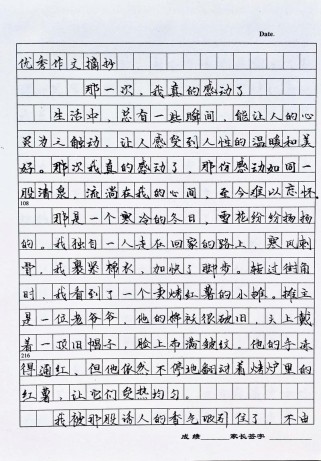 Date.
优秀作文摘抄
那一次，我真的感动了
生活中，总有一些瞬间，能让人的心
灵为之触动，让人感受到人性的温暖和美
好。那次我真的感动了，那份感动如同一
股清泉，流淌在我的心间，至今难以忘怀。
108
那是一个寒冷的冬日，雪花纷纷扬扬
的。我独自一人走在回家的路上，寒风刺
骨，我裹紧棉衣，加快了脚步。转过街角
时，我看到了一个卖烤红薯的小摊。摊主
是一位老爷爷，他的棉袄很破旧，头上戴
着一顶旧帽子，脸上布满皱纹。他的手冻
216
得通红，但他依然不停地翻动着烤炉里的
红薯，让它们受热均匀。
我被那股诱人的香气吸引住了，不由
成绩 家长签字